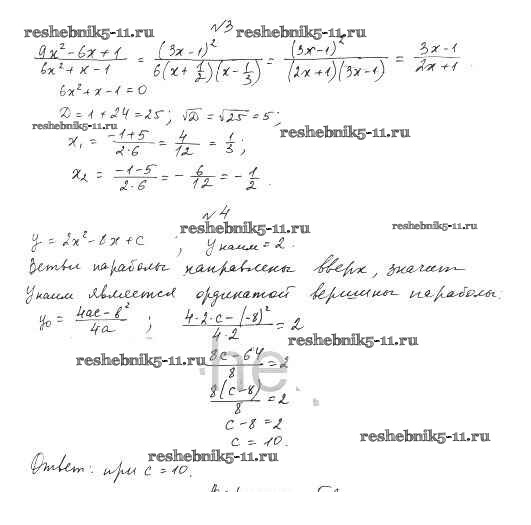 №3
reshebnik5-11.ru reshebnik5-11.ru
(9x²-6x+1)/(6x²+x-1) = (3x-1)²/(6(x+1/2)(x-1/3)) = (3x-1)²/((2x+1)(3x-1)) = (3x-1)/(2x+1).
6x²+x-1=0
D=1+24=25; √D=√25=5;
reshebnik5-11.ru reshebnik5-11.ru
x₁ = (-1+5)/(2·6) = 4/12 = 1/3;
x₂ = (-1-5)/(2·6) = -6/12 = -1/2.
№4
reshebnik5-11.ru reshebnik5-11.ru
y=2x²-8x+c ; yнаим=2.
Ветви параболы направлены вверх, значит
yнаим является ординатой вершины параболы:
y₀ = (4ac-b²)/4a ; (4·2·c-(-8)²)/(4·2) = 2
reshebnik5-11.ru reshebnik5-11.ru
(8c-64)/8 = 2
8(c-8)/8 = 2
c-8=2
c=10.
reshebnik5-11.ru
reshebnik5-11.ru
Ответ: при c=10.